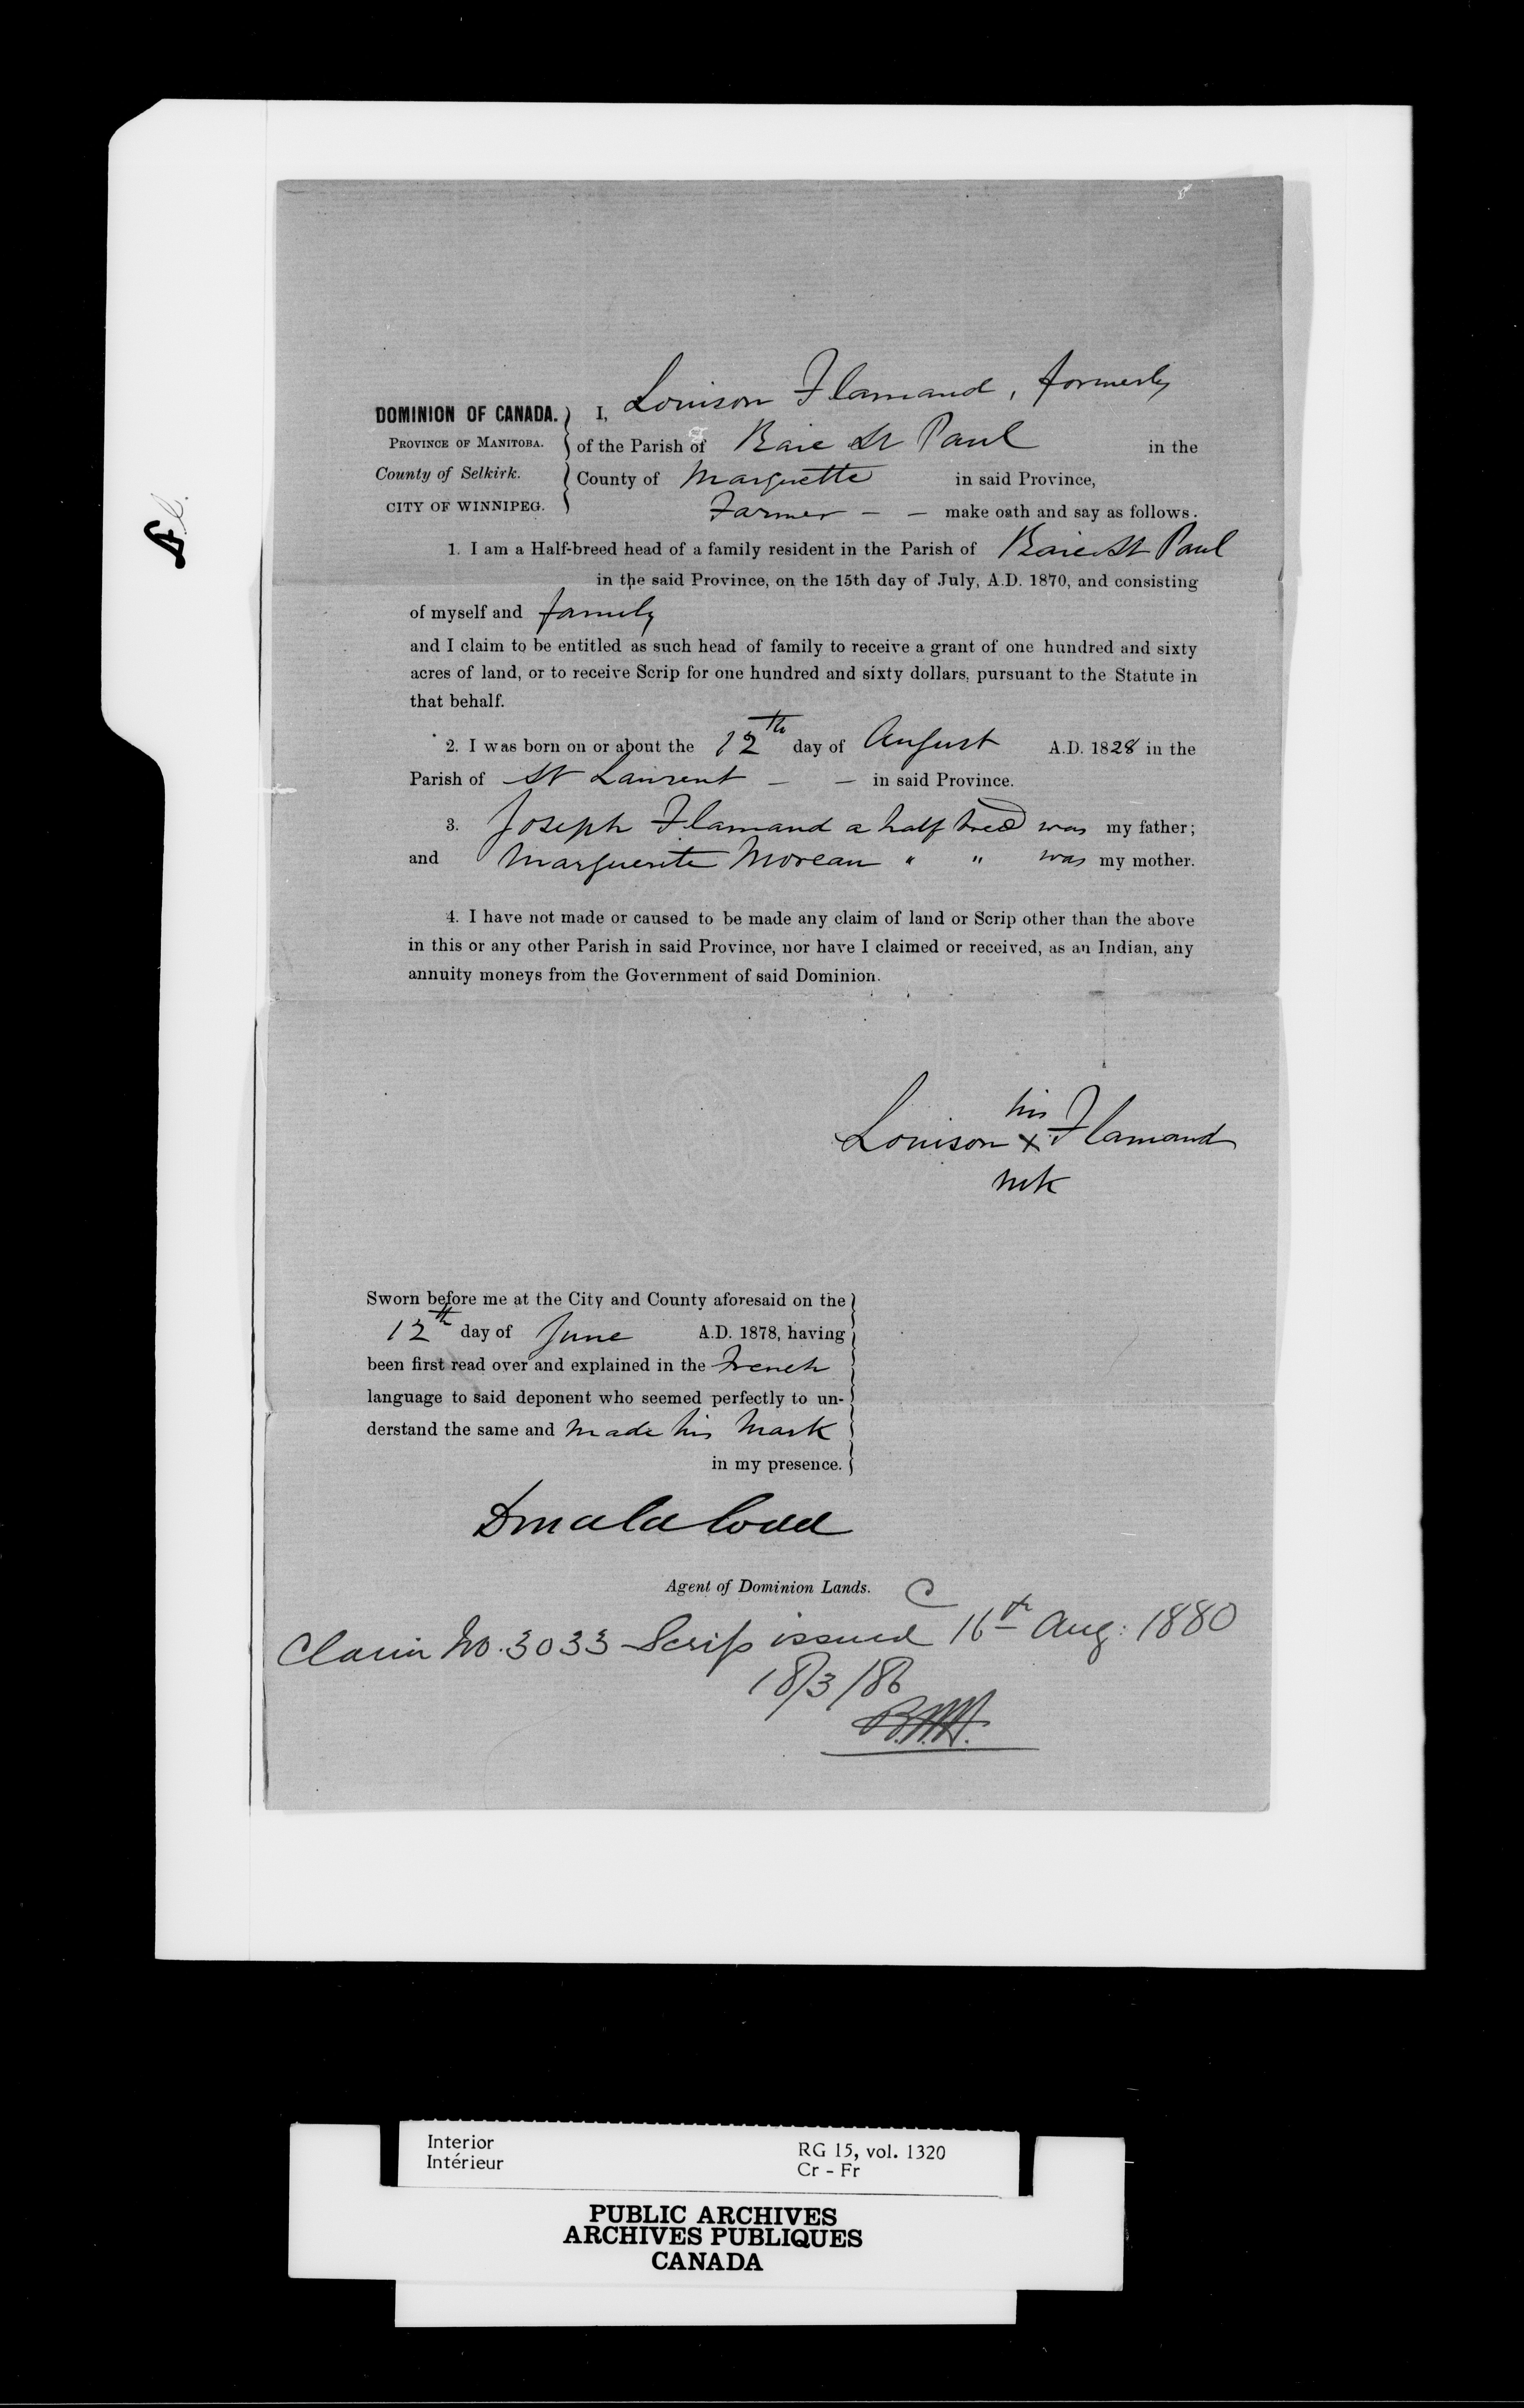 DOMINION OF CANADA. I, Louison Flamand, formerly
PROVINCE OF MANITOBA. of the Parish of Baie St Paul in the
County of Selkirk. County of Marquette in said Province,
CITY OF WINNIPEG. Farmer — — make oath and say as follows.
1. I am a Half-breed head of a family resident in the Parish of Baie St Paul
in the said Province, on the 15th day of July, A.D. 1870, and consisting
of myself and family
and I claim to be entitled as such head of family to receive a grant of one hundred and sixty
acres of land, or to receive Scrip for one hundred and sixty dollars, pursuant to the Statute in
that behalf.
2. I was born on or about the 12th day of August A.D. 1828 in the
Parish of St Laurent — — in said Province.
3. Joseph Flamand a half breed was my father;
and Marguerite Moreau " " was my mother.
4. I have not made or caused to be made any claim of land or Scrip other than the above
in this or any other Parish in said Province, nor have I claimed or received, as an Indian, any
annuity moneys from the Government of said Dominion.
his
Louison x Flamand
mk
Sworn before me at the City and County aforesaid on the
12th day of June A.D. 1878, having
been first read over and explained in the French
language to said deponent who seemed perfectly to un-
derstand the same and made his mark
in my presence.
Donald Codd
Agent of Dominion Lands. C
Claim No. 3033 Scrip issued 16th Aug: 1880
18/3/86
Interior
Intérieur
RG 15, vol. 1320
Cr - Fr
PUBLIC ARCHIVES
ARCHIVES PUBLIQUES
CANADA